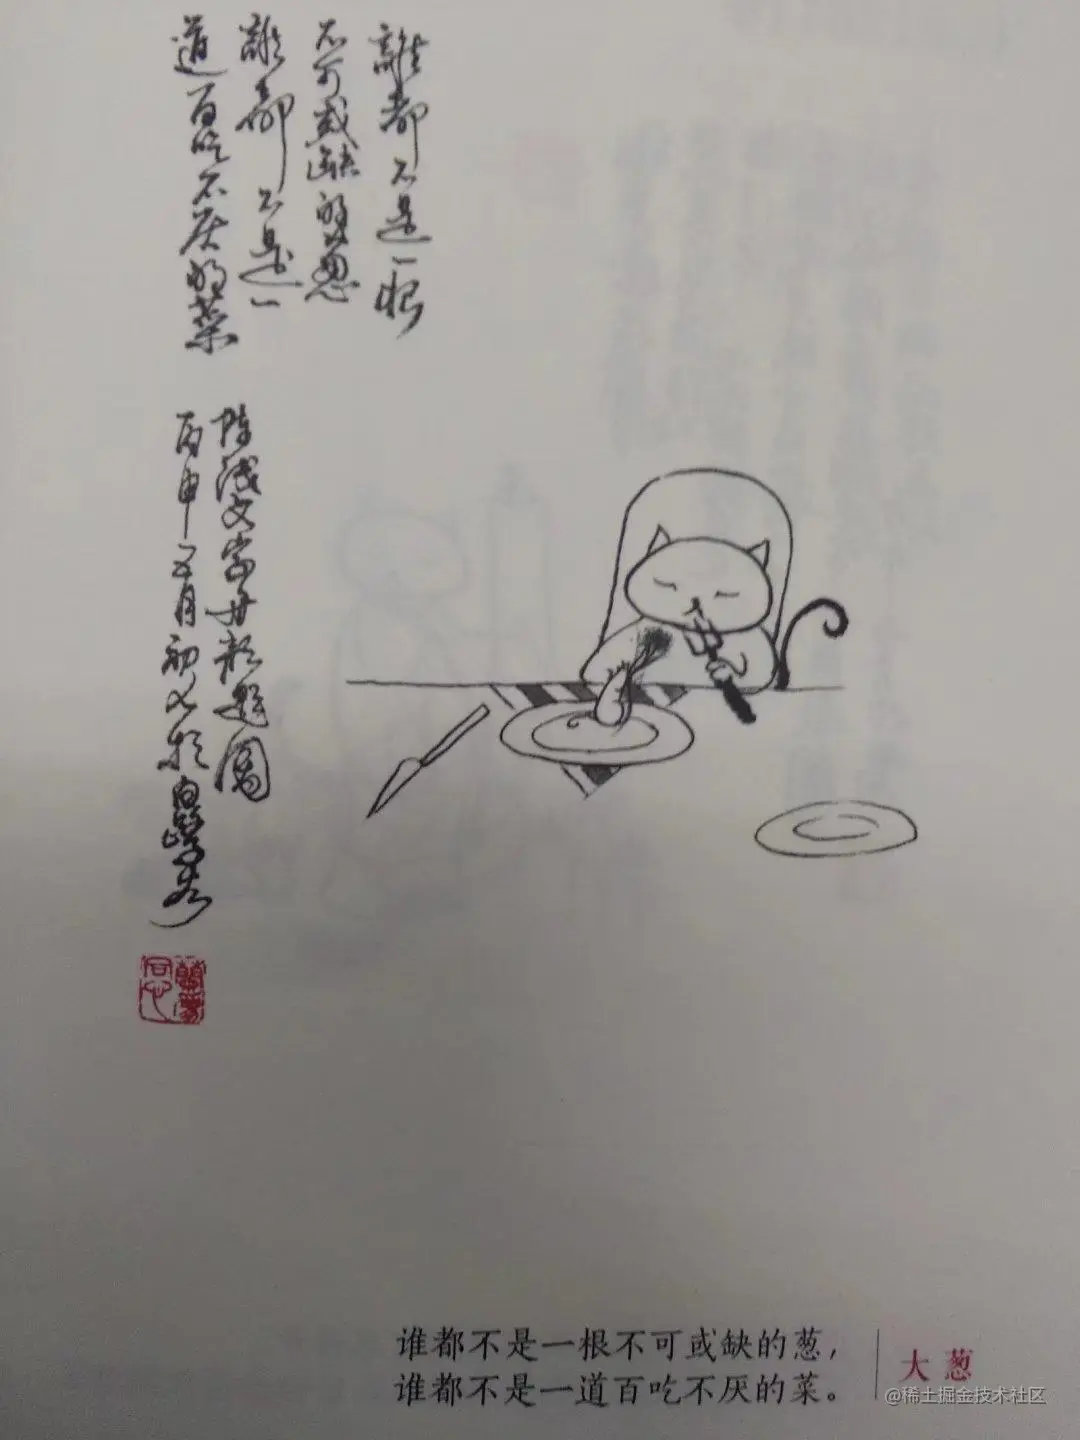 誰都不是一根
不可或缺的葱
誰都不是一
道百吃不厌的菜
丙申五月初七於
谁都不是一根不可或缺的葱，
谁都不是一道百吃不厌的菜。
大葱
@稀土掘金技术社区